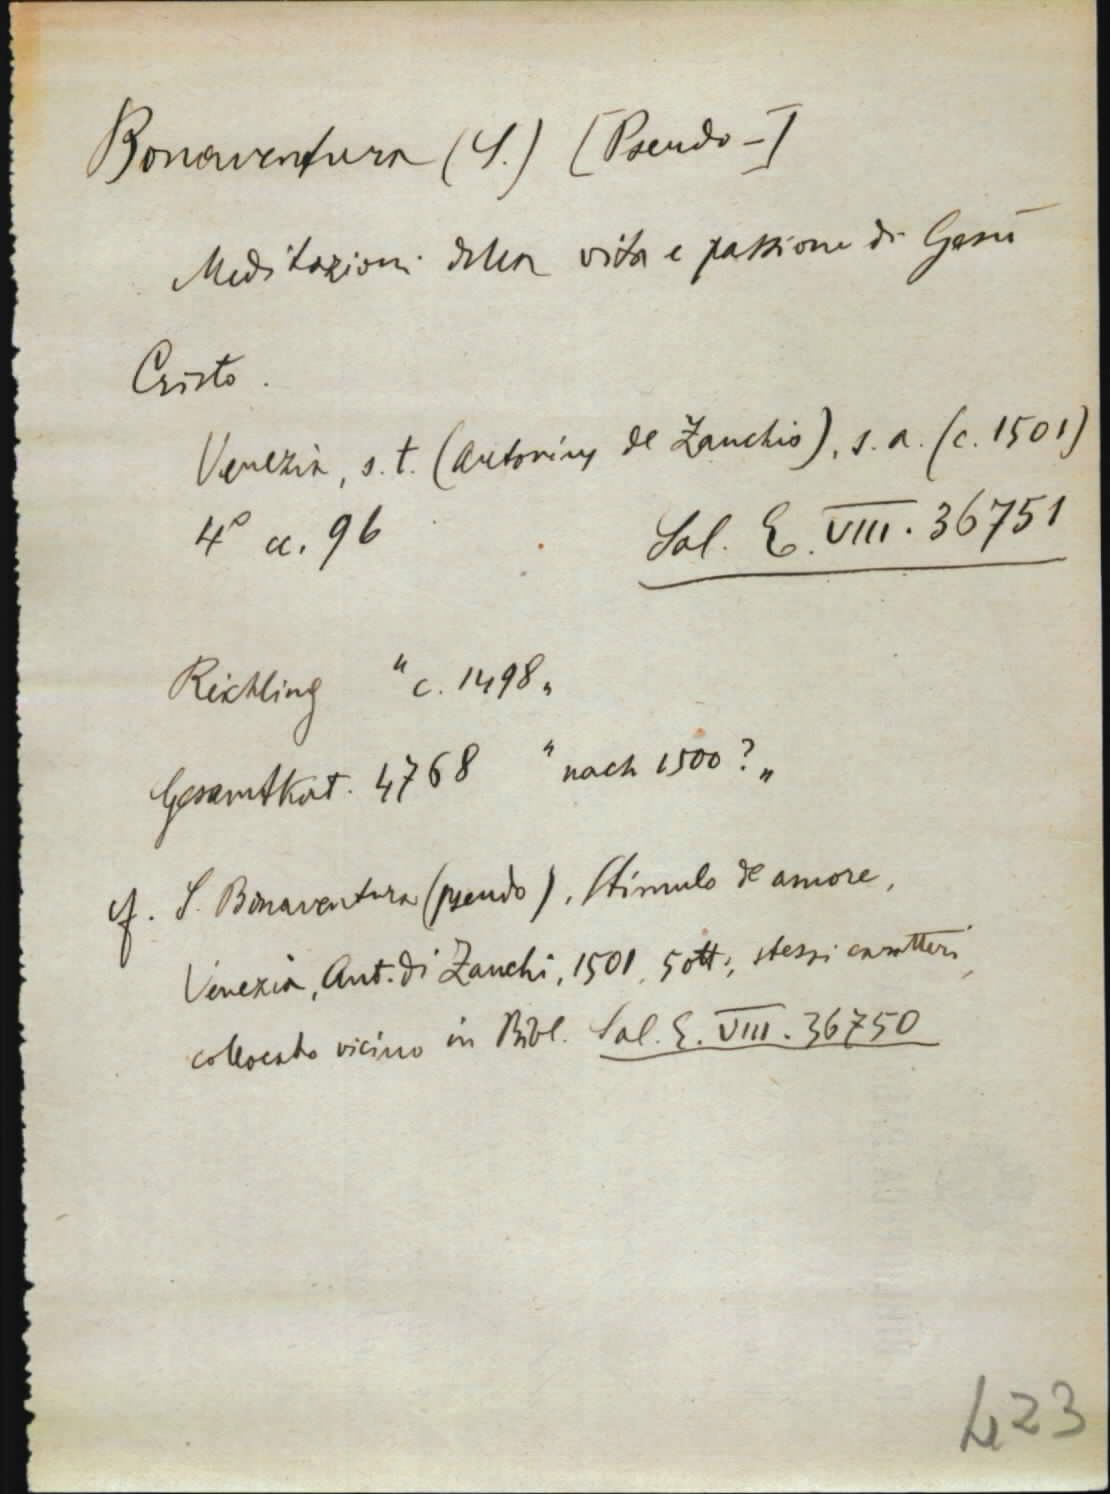 Bonaventura (S.) [Pseudo-]
Meditazioni della vita e passione di Gesù
Cristo.
Venezia, s.t. (Antonius de Zanchis), s.a. (c. 1501)
4° cc. 96
Sal. E. VIII. 36751
Reichling "c. 1498"
Gesamtkat. 4768 "nach 1500?"
cf. S. Bonaventura (pseudo), Stimulo de amore,
Venezia, Ant. di Zanchi, 1501, 5 ott., stessi caratteri,
collocato vicino in Bibl. Sal. E. VIII. 36750
423